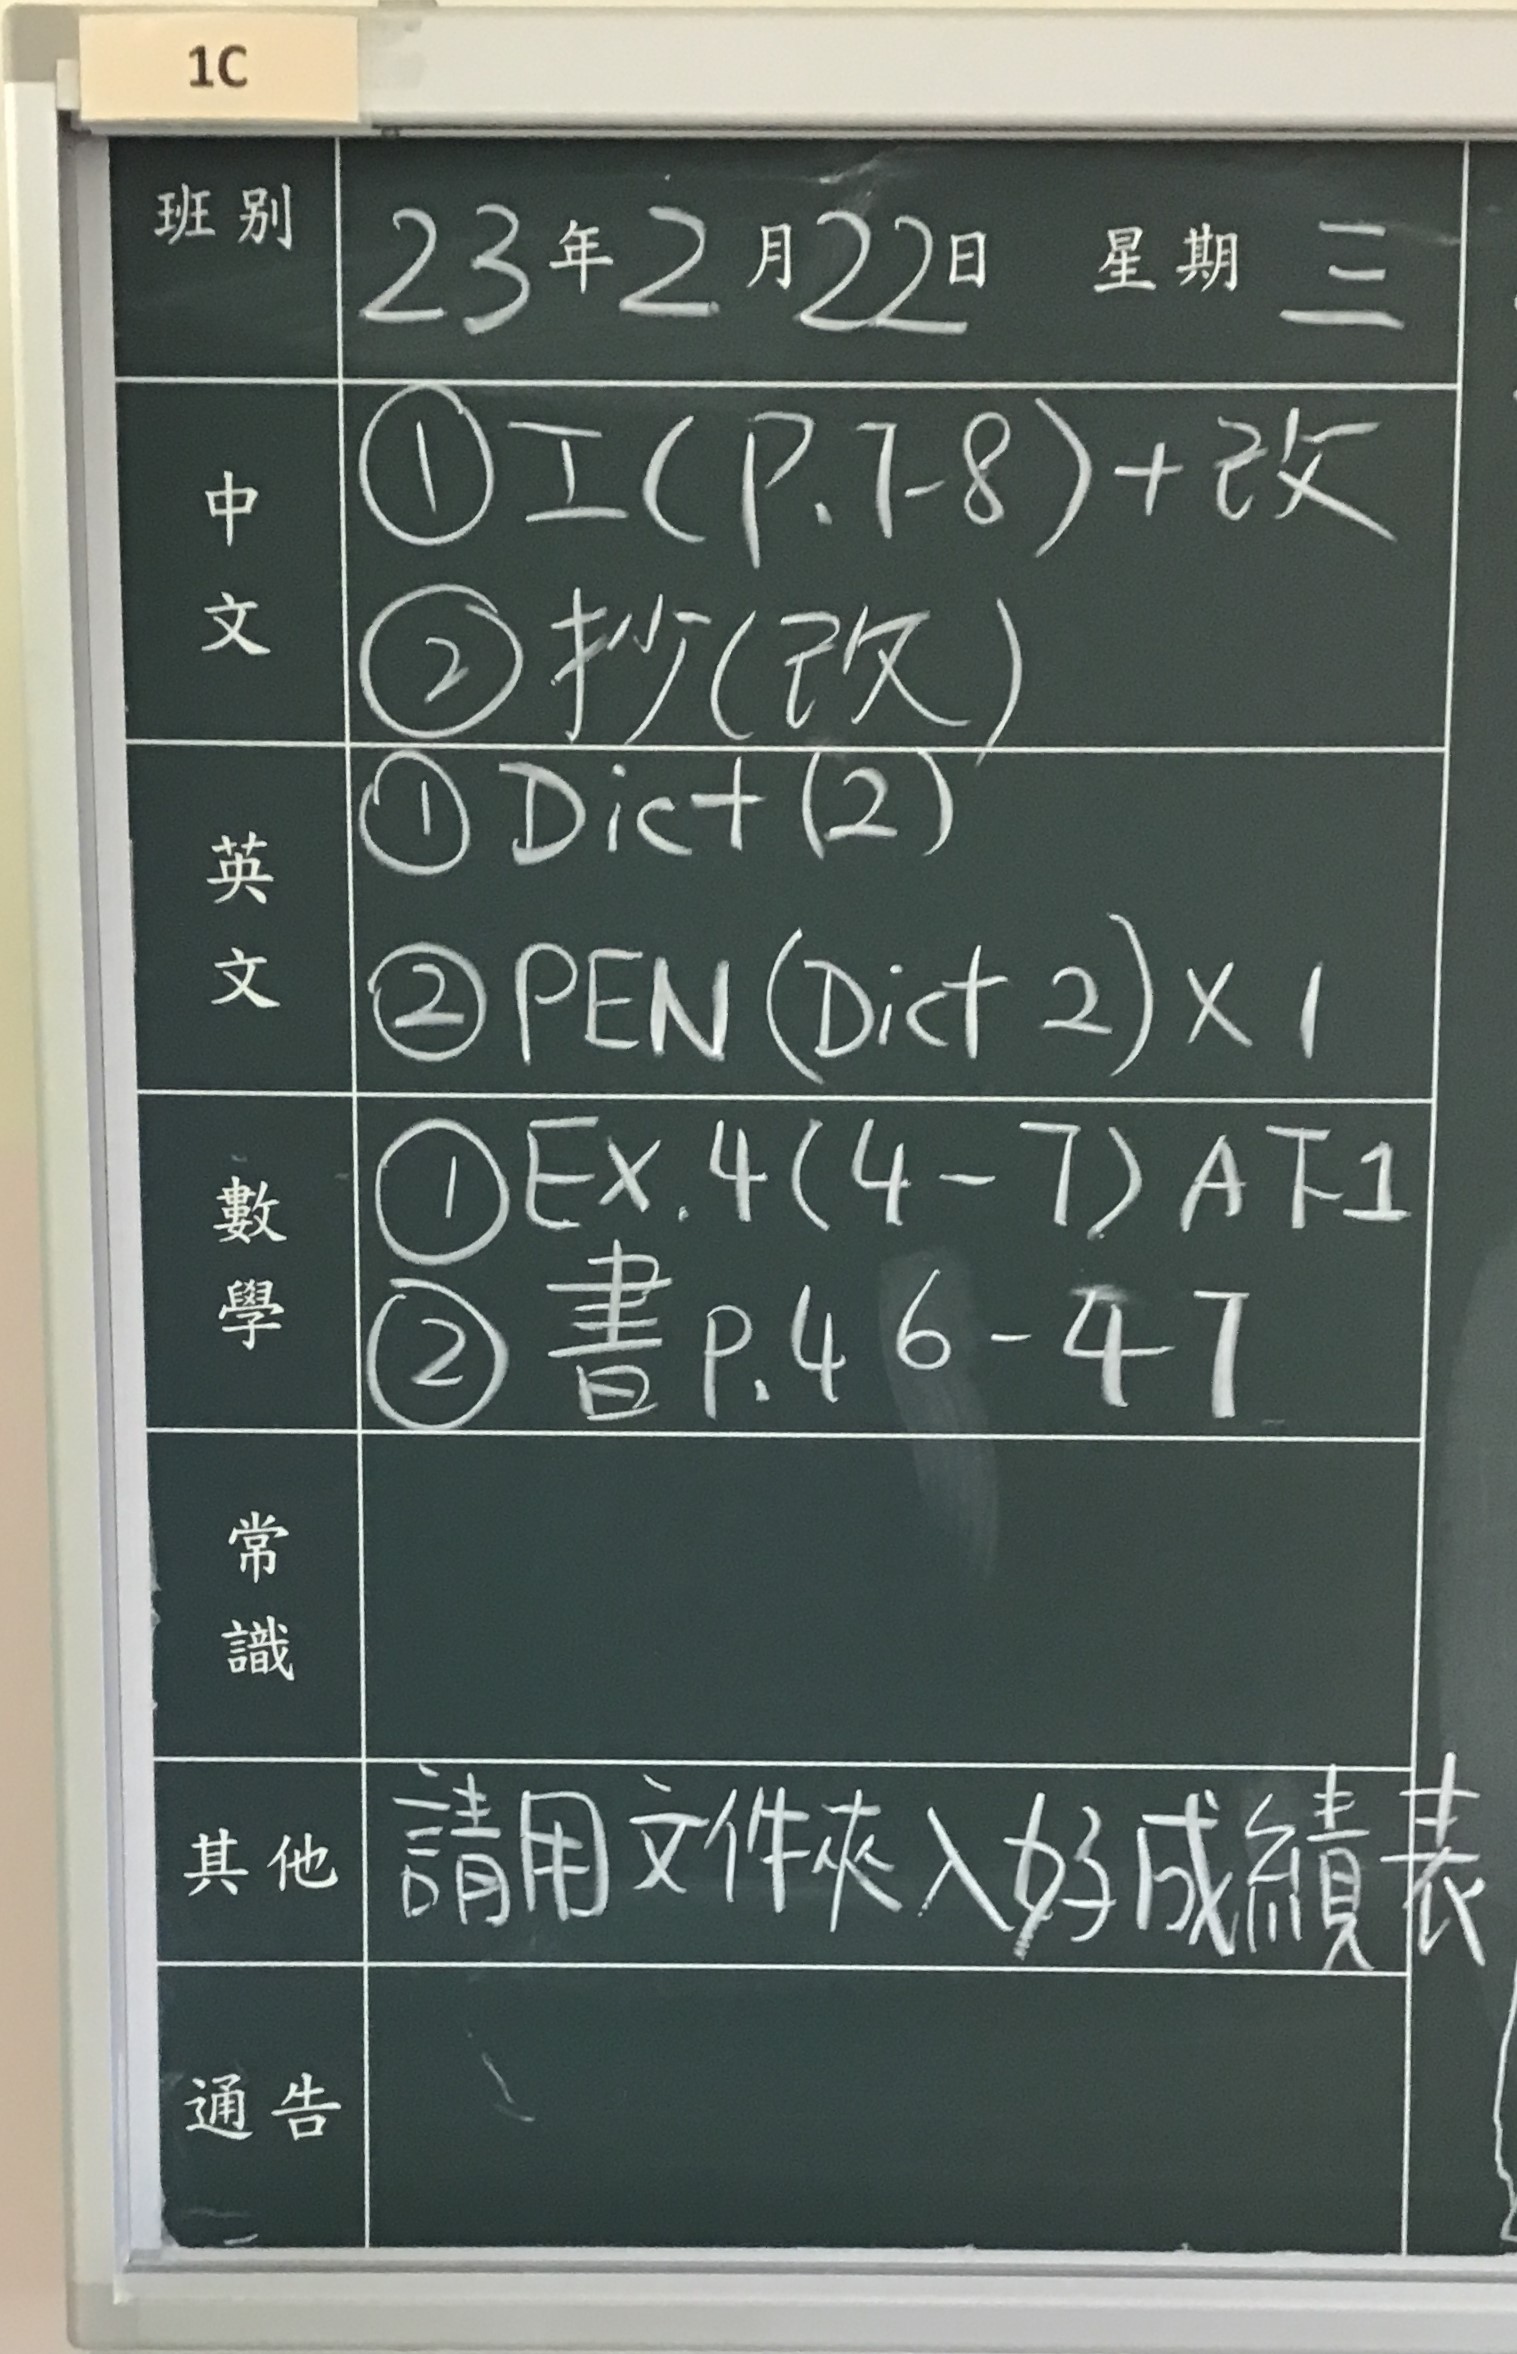 1C
班別
23年2月22日 星期三
中文
①工(P.7-8)+改
②抄(改)
英文
①Dict(2)
②PEN(Dict 2)×1
數學
①Ex.4(4-7)A下1
②書P.46-47
常識
其他
請用文件夾入好成績表
通告